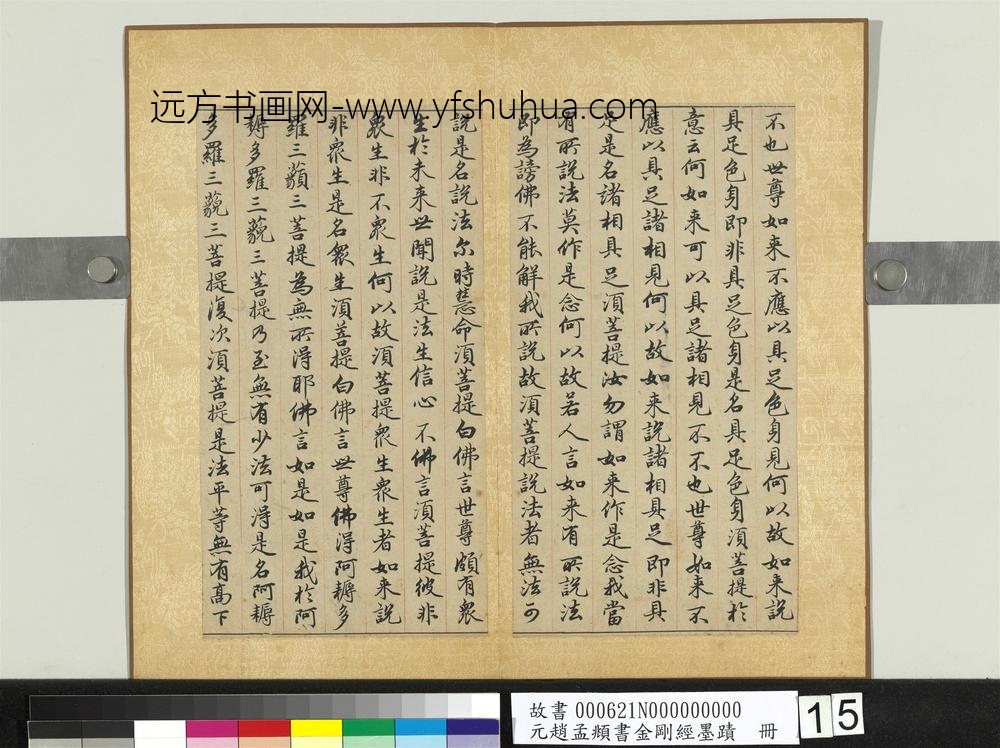 远方书画网-www.yfshuhua.com
不也世尊如来不應以具足色身見何以故如来說
具足色身即非具足色身是名具足色身須菩提於
意云何如来可以具足諸相見不不也世尊如来不
應以具足諸相見何以故如来說諸相具足即非具
足是名諸相具足須菩提汝勿謂如来作是念我當
有所說法莫作是念何以故若人言如来有所說法
即為謗佛不能解我所說故須菩提說法者無法可
說是名說法尔時慧命須菩提白佛言世尊頗有衆
生於未来世聞說是法生信心不佛言須菩提彼非
衆生非不衆生何以故須菩提衆生衆生者如来說
非衆生是名衆生須菩提白佛言世尊佛得阿耨多
羅三藐三菩提為無所得耶佛言如是如是我於阿
耨多羅三藐三菩提乃至無有少法可得是名阿耨
多羅三藐三菩提復次須菩提是法平等無有高下
故書 000621N000000000
元趙孟頫書金剛經墨蹟 冊
15